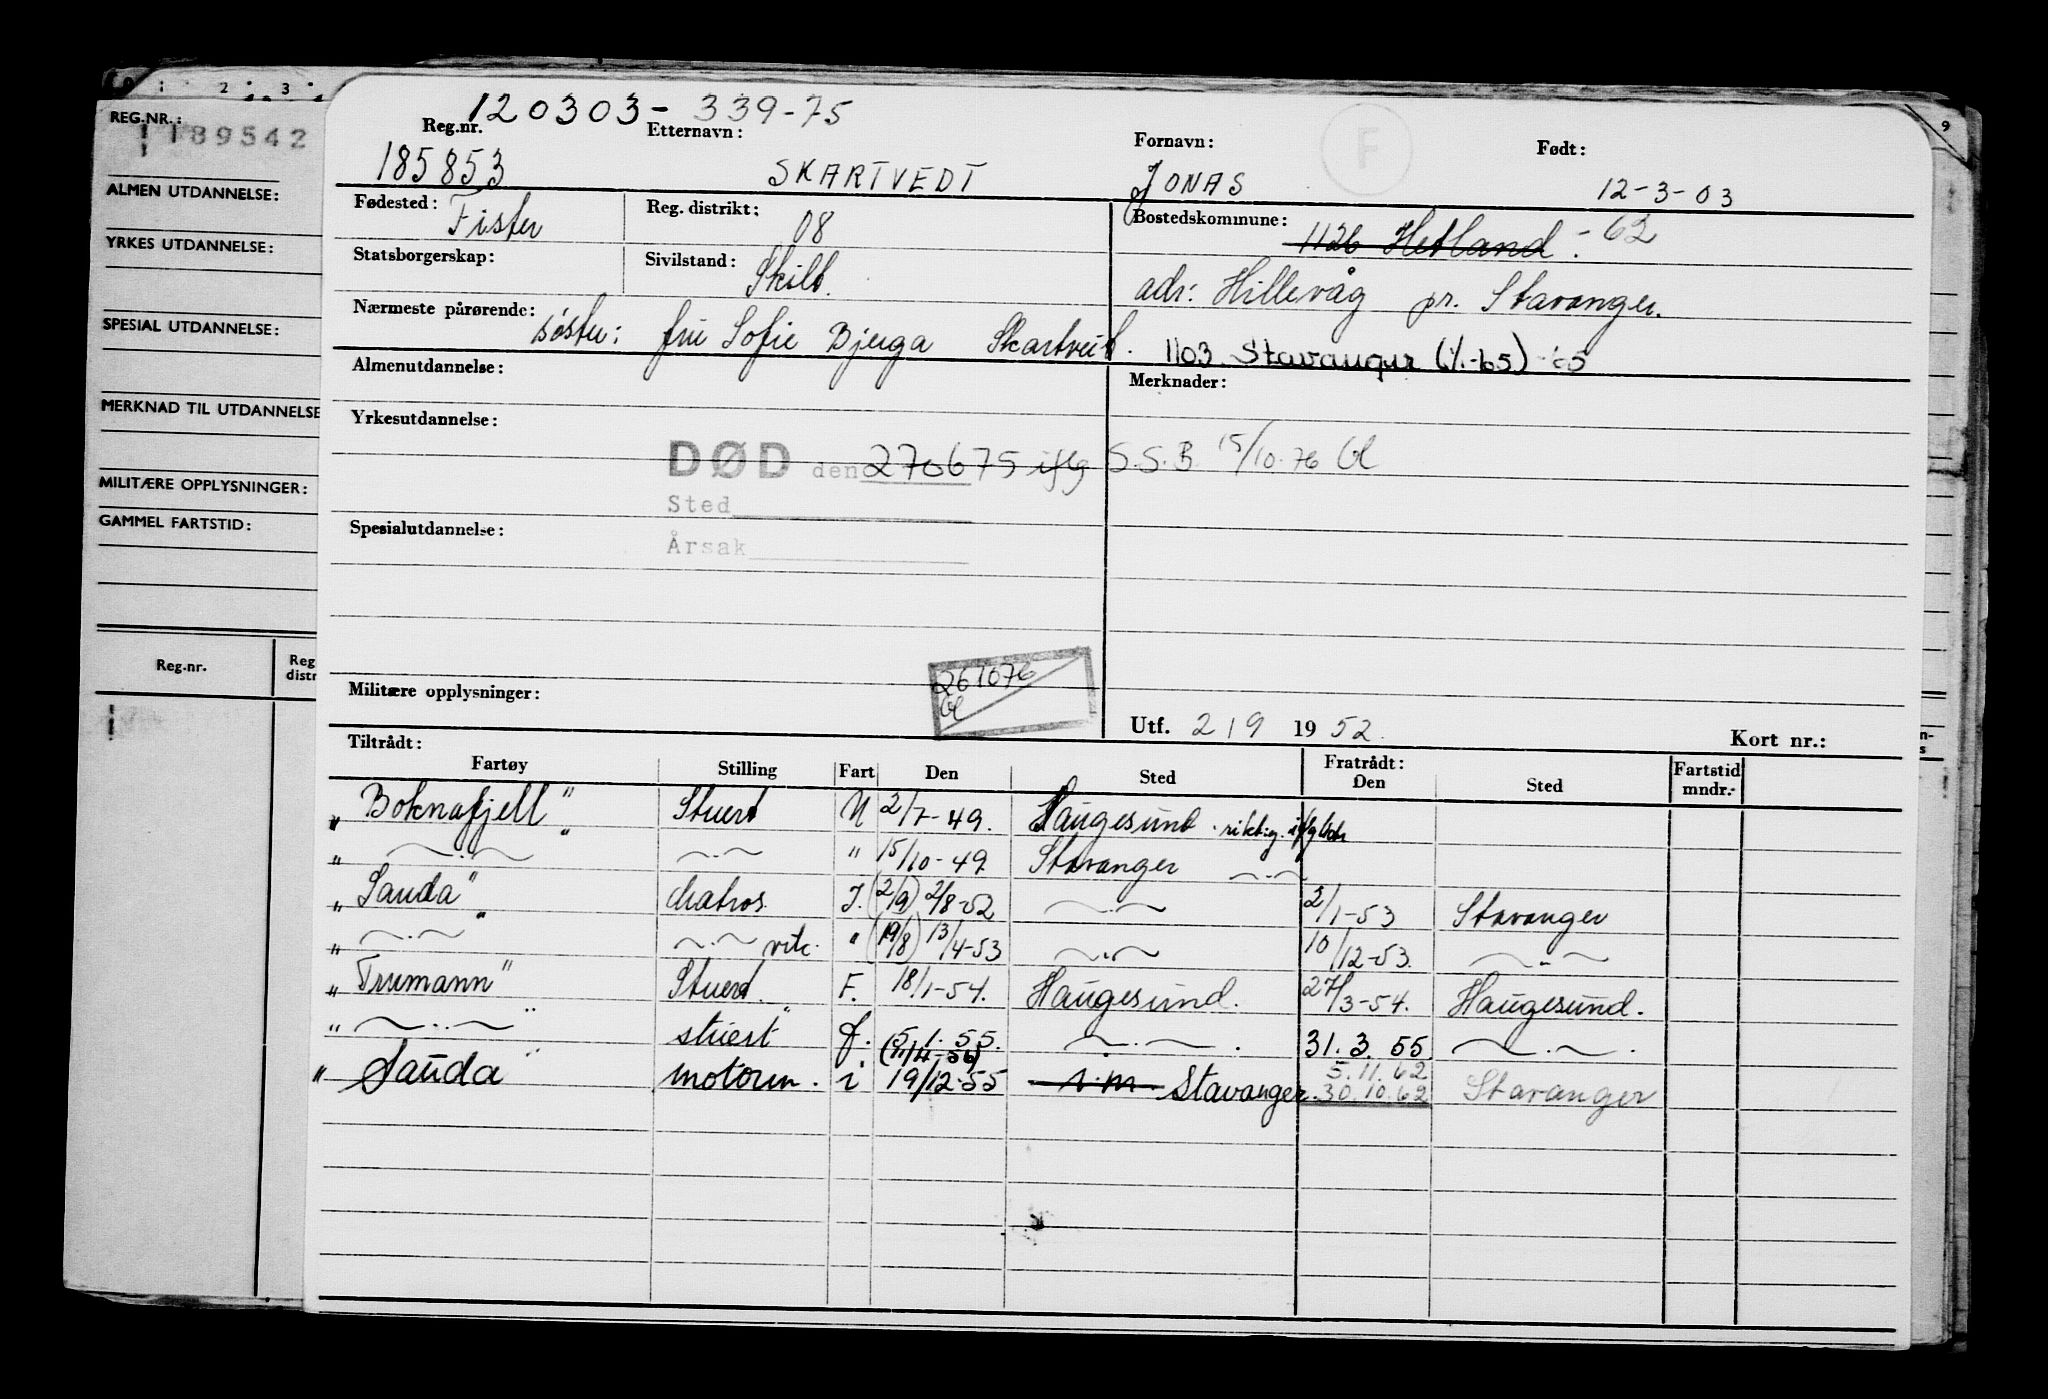 1 2 3 9
REG.NR.: 189542
ALMEN UTDANNELSE:
YRKES UTDANNELSE:
SPESIAL UTDANNELSE:
MERKNAD TIL UTDANNELSE
MILITÆRE OPPLYSNINGER:
GAMMEL FARTSTID:
Reg.nr. Reg. distr
120303-339-75
Reg.nr. Etternavn: Fornavn: F Født:
185853 SKARTVEDT JONAS 12-3-03
Fødested: Fister Reg. distrikt: 08 Bostedskommune: 1126 Hetland. -62
Statsborgerskap: Sivilstand: Skilt. adr: Hillevåg pr. Stavanger.
Nærmeste pårørende: søster: fru Sofie Bjerga Skartveit. 1103 Stavanger (1/1-65)
Almenutdannelse: Merknader:
Yrkesutdannelse:
DØD den 270675 iflg S.S.B. 15/10.76
Sted
Spesialutdannelse:
Årsak
261076
Militære opplysninger: Utf. 2/9 1952. Kort nr.:
Tiltrådt: Fratrådt:
Fartøy Stilling Fart Den Sted Den Sted Fartstid mndr.
"Boknafjell" Stuert U 2/7-49. Haugesund. riktig.
" —..— " —..— " 15/10-49 Stavanger —..—
"Sauda" Matros I. (2/9) 2/8-52 —..— 2/1-53 Stavanger
" —..— " —..— " (19/8) 13/4-53 —..— 10/12-53. —..—
"Trumann" Stuert. F. 18/1-54. Haugesund. 27/3-54. Haugesund.
" —..— " stuert f. 5.1.55. —..—. 31.3.55. —..—.
"Sauda" motorm. i (11/4-56) 19/12-55 s.m Stavanger. 5.11.62 30.10.62 Stavanger